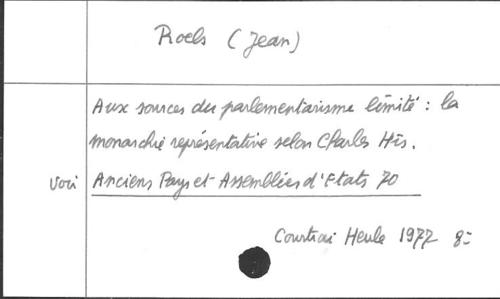 Roels (Jean)
Aux sources du parlementarisme limité : la
monarchie représentative selon Charles His.
voir Anciens Pays et Assemblées d'Etats 70
Courtrai Heule 1977 8=